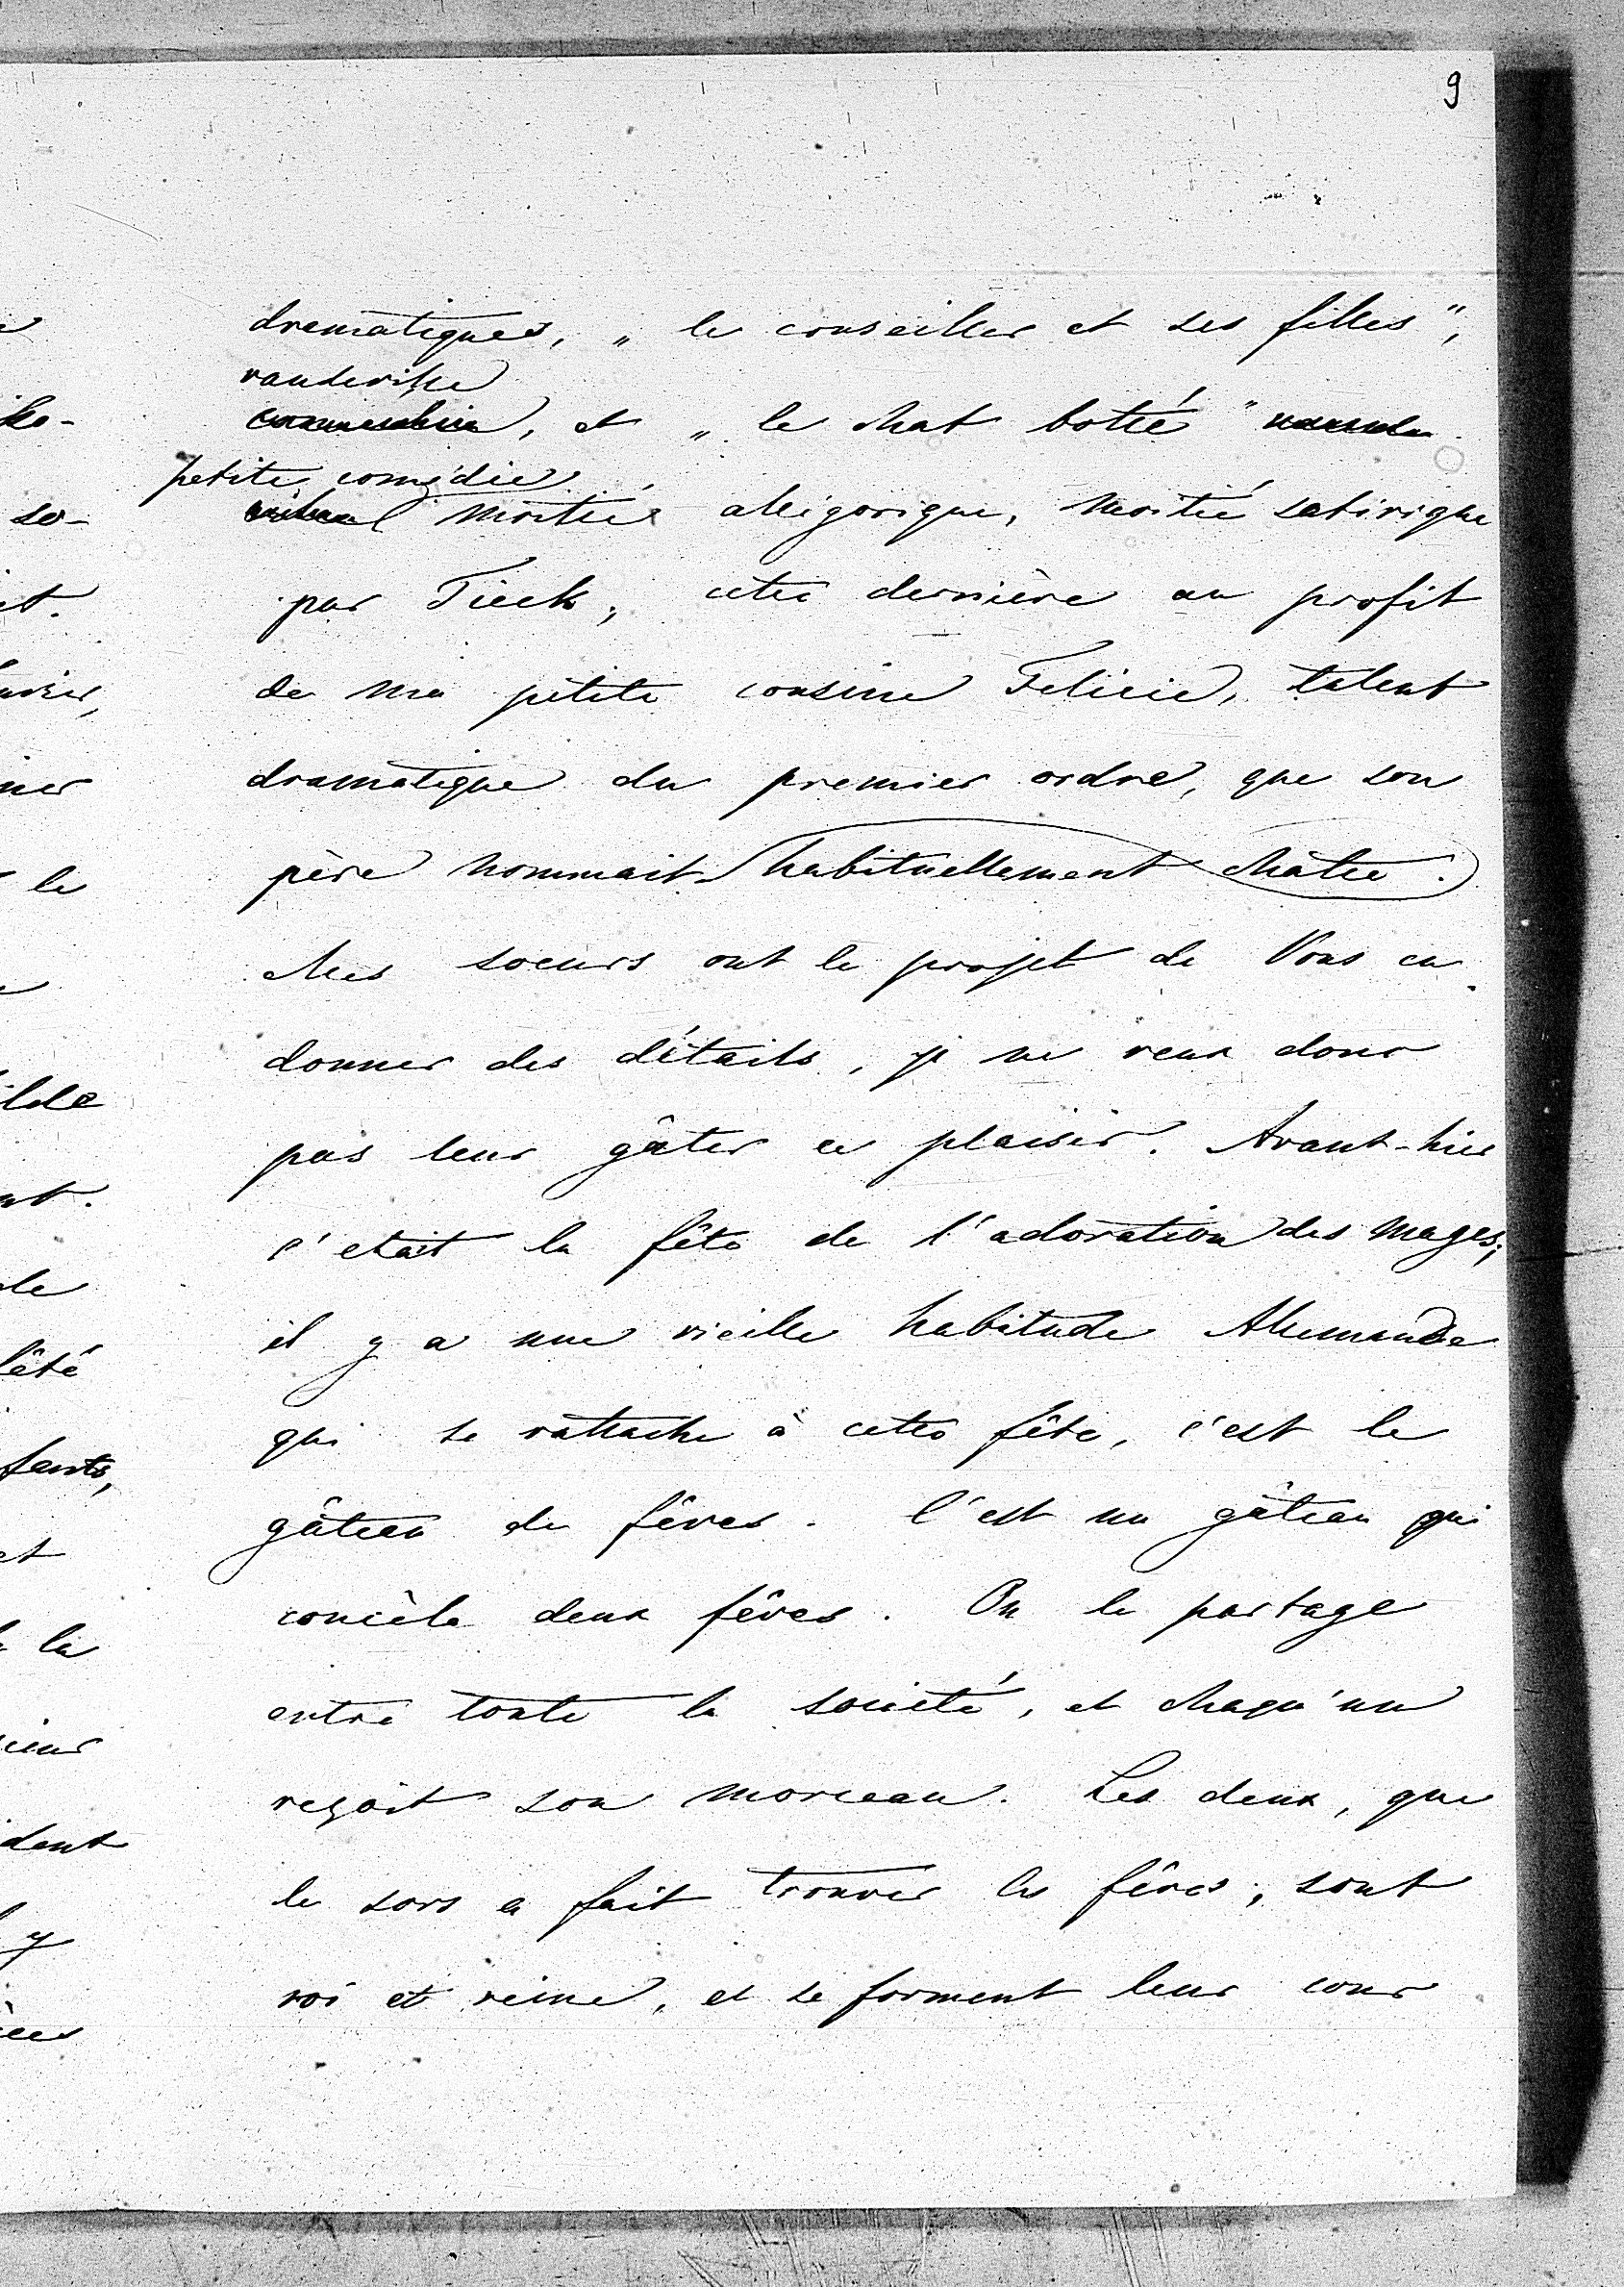 9
dramatiques, „ le conseiller et ses filles ",
vaudeville
, et „ le chat botté "
petite comédie
moitié allégorique, moitié satirique
par Tieck, cette dernière au profit
de ma petite cousine Felicie, talent
dramatique du premier ordre, que son
père nommait habituellement
Mes soeurs ont le projet de Vous en
donner des détails, je ne veux donc
pas leur gâter ce plaisir. Avant-hier
c'etait la fête de l'adoration des Mages;
il y a une vieille habitude Allemande
qui se rattache à cette fête, c'est le
gâteau de fêves. C'est un gâteau qui
concèle deux fêves. On le partage
entre toute la société, et chaqu'un
reçoit son morceau. Les deux, que
le sors a fait trouver les fêves, sont
roi et reine, et se forment leur cour
ko-
so-
le
l'été
et
la
y